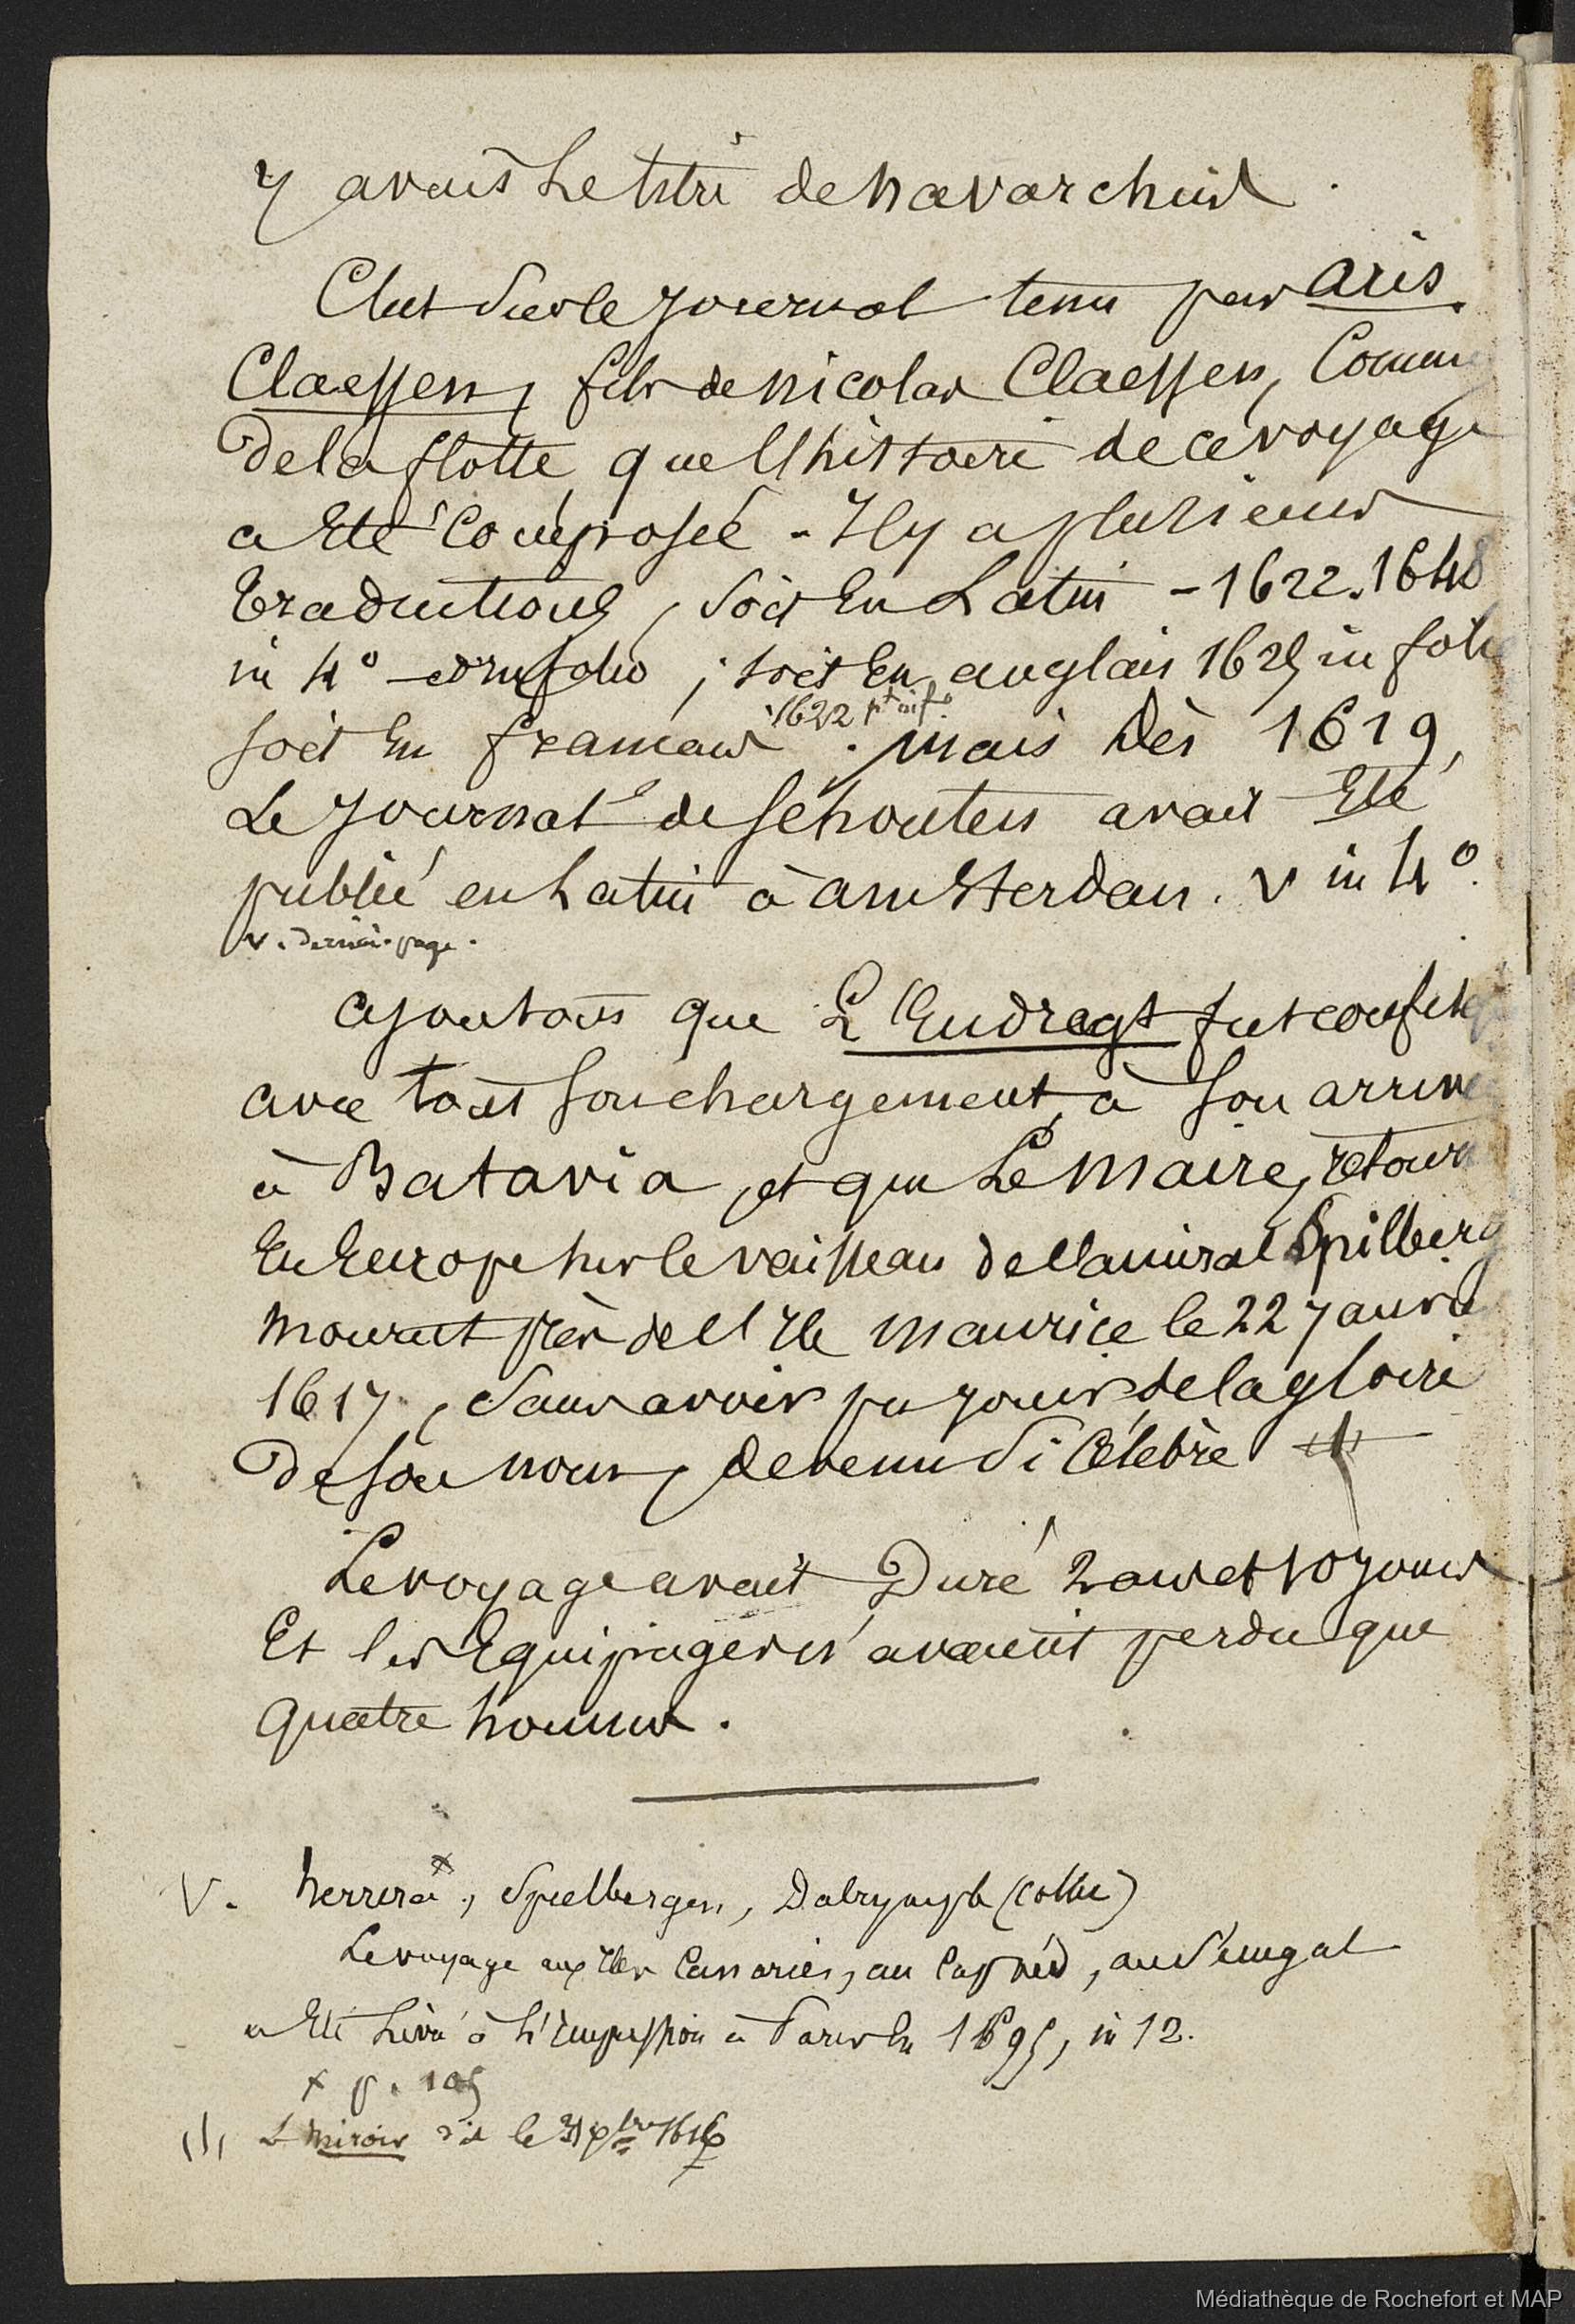 y avait le titre de navarchus.
C'est sur le journal tenu par aris
Claessen, fils de nicolas Claessen, Commis
De la flotte, que l'histoire de ce voyage
a Eté Composée - Il y a plusieurs
traductions, soit En Latin - 1622. 1648
in 4° et in folio ; soit En anglais 1625 in folio
1622 pt in f°.
soit En francais . mais Dès 1619,
Le journal de Schouten avait Eté
publié en Latin à amsterdam. v in 4°.
v. dernière page.
ajoutons que L'Endragt fut confisq
avec tout son chargement, à son arrivée
à Batavia, et que Le Maire, retourn
En Europe sur le vaisseau de l'amiral Spilberg
Mourut près de l'Ile Maurice le 22 janvier
1617, sans avoir pu jouir de la gloire
De son nom, devenu si Célèbre
Le voyage avait Duré 2 ans et 10 jours
Et les Equipages n'avaient perdu que
quatre hommes.
V. herrera x, Spielbergen, Dalrymple (collec)
Le voyage aux Iles Canaries, au Cap verd, au Sénégal
a Eté Livré à L'impression à Paris En 1695, in 12.
x p. 105
(1) Le Miroir dit le 31 Xbre 1616
Médiathèque de Rochefort et MAP